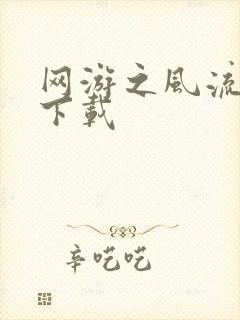 网游之风流
下载
辛吃吃